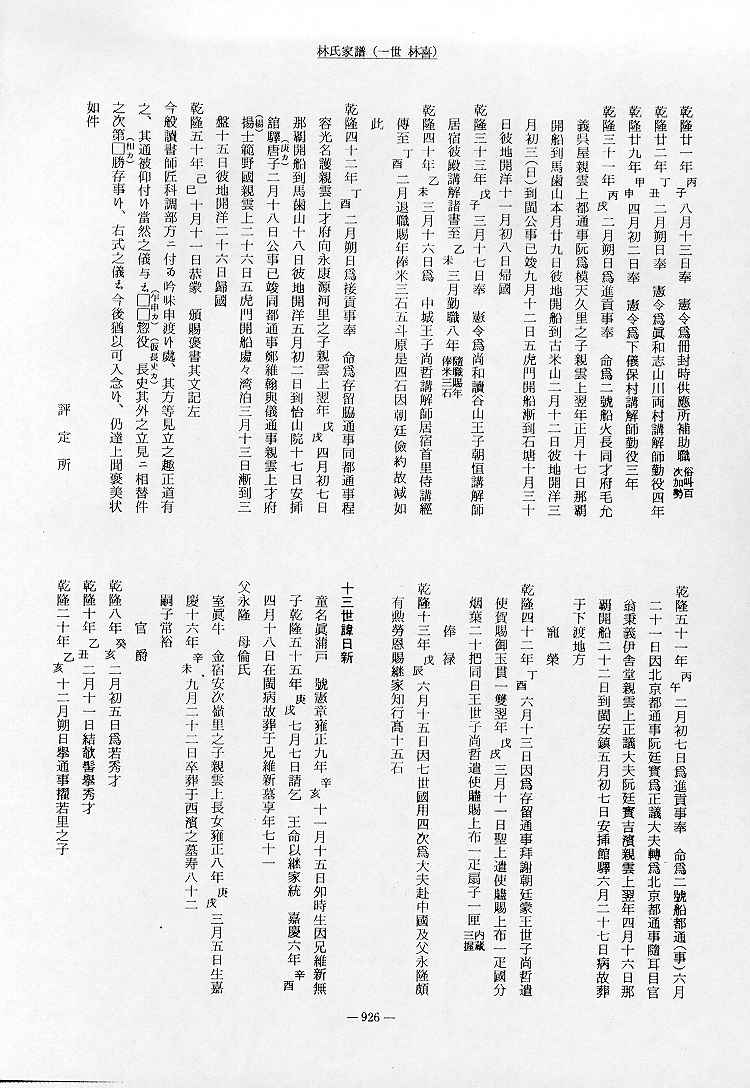 林氏家譜（一世 林喜）
乾隆廿一年丙子八月十三日奉　憲令爲冊封時供應所補助職俗叫百次加勢
乾隆廿二年丁丑二月朔日奉　憲令爲眞和志山川両村講解師勤役四年
乾隆廿九年甲申四月初二日奉　憲令爲下儀保村講解師勤役三年
乾隆三十一年丙戌二月朔日爲進貢事奉　命爲二號船火長同才府毛允
義呉屋親雲上都通事阮爲模天久里之子親雲上翌年正月十七日那覇
開船到馬歯山本月廿九日彼地開船到古米山二月十二日彼地開洋三
月初三（日）到閩公事已竣九月十二日五虎門開船漸到石塘十月三十
日彼地開洋十一月初八日歸國
乾隆三十三年戊子三月十七日奉　憲令爲尚和讀谷山王子朝恒講解師
居宿彼殿講解諸書至乙未三月勤職八年隨職賜年俸米三石
乾隆四十年乙未三月十六日爲　中城王子尚哲講解師居宿首里侍講經
傳至丁酉二月退職賜年俸米三石五斗原是四石因朝廷儉約故減如
此
乾隆四十二年丁酉二月朔日爲接貢事奉　命爲存留脇通事同都通事程
容光名護親雲上才府向永康源河里之子親雲上翌年戊戌四月初七日
那覇開船到馬歯山十八日彼地開洋五月初二日到怡山院十七日安挿
舘驛唐子（庚カ）二月十八日公事已竣同都通事鄭維翰與儀通事親雲上才府
揚（楊）士範野國親雲上二十六日五虎門開船處々湾泊三月十三日漸到三
盤十五日彼地開洋二十六日歸國
乾隆五十年己巳十月十一日恭蒙　頒賜褒書其文記左
今般讀書師匠科調部方ニ付而吟味申渡候處、其方等見立之趣正道有
之、其通被仰付候當然之儀与者□□（乍申カ）惣役　長史（仮長史カ）其外之立見ニ相替件
之次第□（相カ）勝存事候、右式之儀者今後猶以可入念候、仍達上聞褒美状
如件
評定所
乾隆五十一年丙午二月初七日爲進貢事奉　命爲二號船都通（事）六月
二十一日因北京都通事阮廷寶爲正議大夫轉爲北京都通事隨耳目官
翁秉義伊舎堂親雲上正議大夫阮廷寶吉濱親雲上翌年四月十六日那
覇開船二十二日到閩安鎮五月初七日安挿館驛六月二十七日病故葬
于下渡地方
寵榮
乾隆四十二年丁酉六月十三日因爲存留通事拜謝朝廷蒙王世子尚哲遣
使賀賜御玉貫一雙翌年戊戌三月十一日聖上遣使臚賜上布一疋國分
烟葉二十把同日王世子尚哲遣使臚賜上布一疋扇子一匣内蔵三握
俸禄
乾隆十三年戊辰六月十五日因七世國用四次爲大夫赴中國及父永隆頗
有勲勞恩賜継家知行髙十五石
十三世諱日新
童名眞浦戸　號憲章雍正九年辛亥十一月十五日卯時生因兄維新無
子乾隆五十五年庚戌七月七日請乞　王命以継家統　嘉慶六年辛酉
四月十八日在閩病故葬于兄維新墓享年七十一
父永隆　母倫氏
室眞牛　金宿安次嶺里之子親雲上長女雍正八年庚戌三月五日生嘉
慶十六年辛未九月二十二日卒葬于西濱之墓寿八十二
嗣子常裕
官爵
乾隆八年癸亥二月初五日爲若秀才
乾隆十年乙丑二月十一日結欹髻擧秀才
乾隆二十年乙亥十二月朔日擧通事擢若里之子
—926—